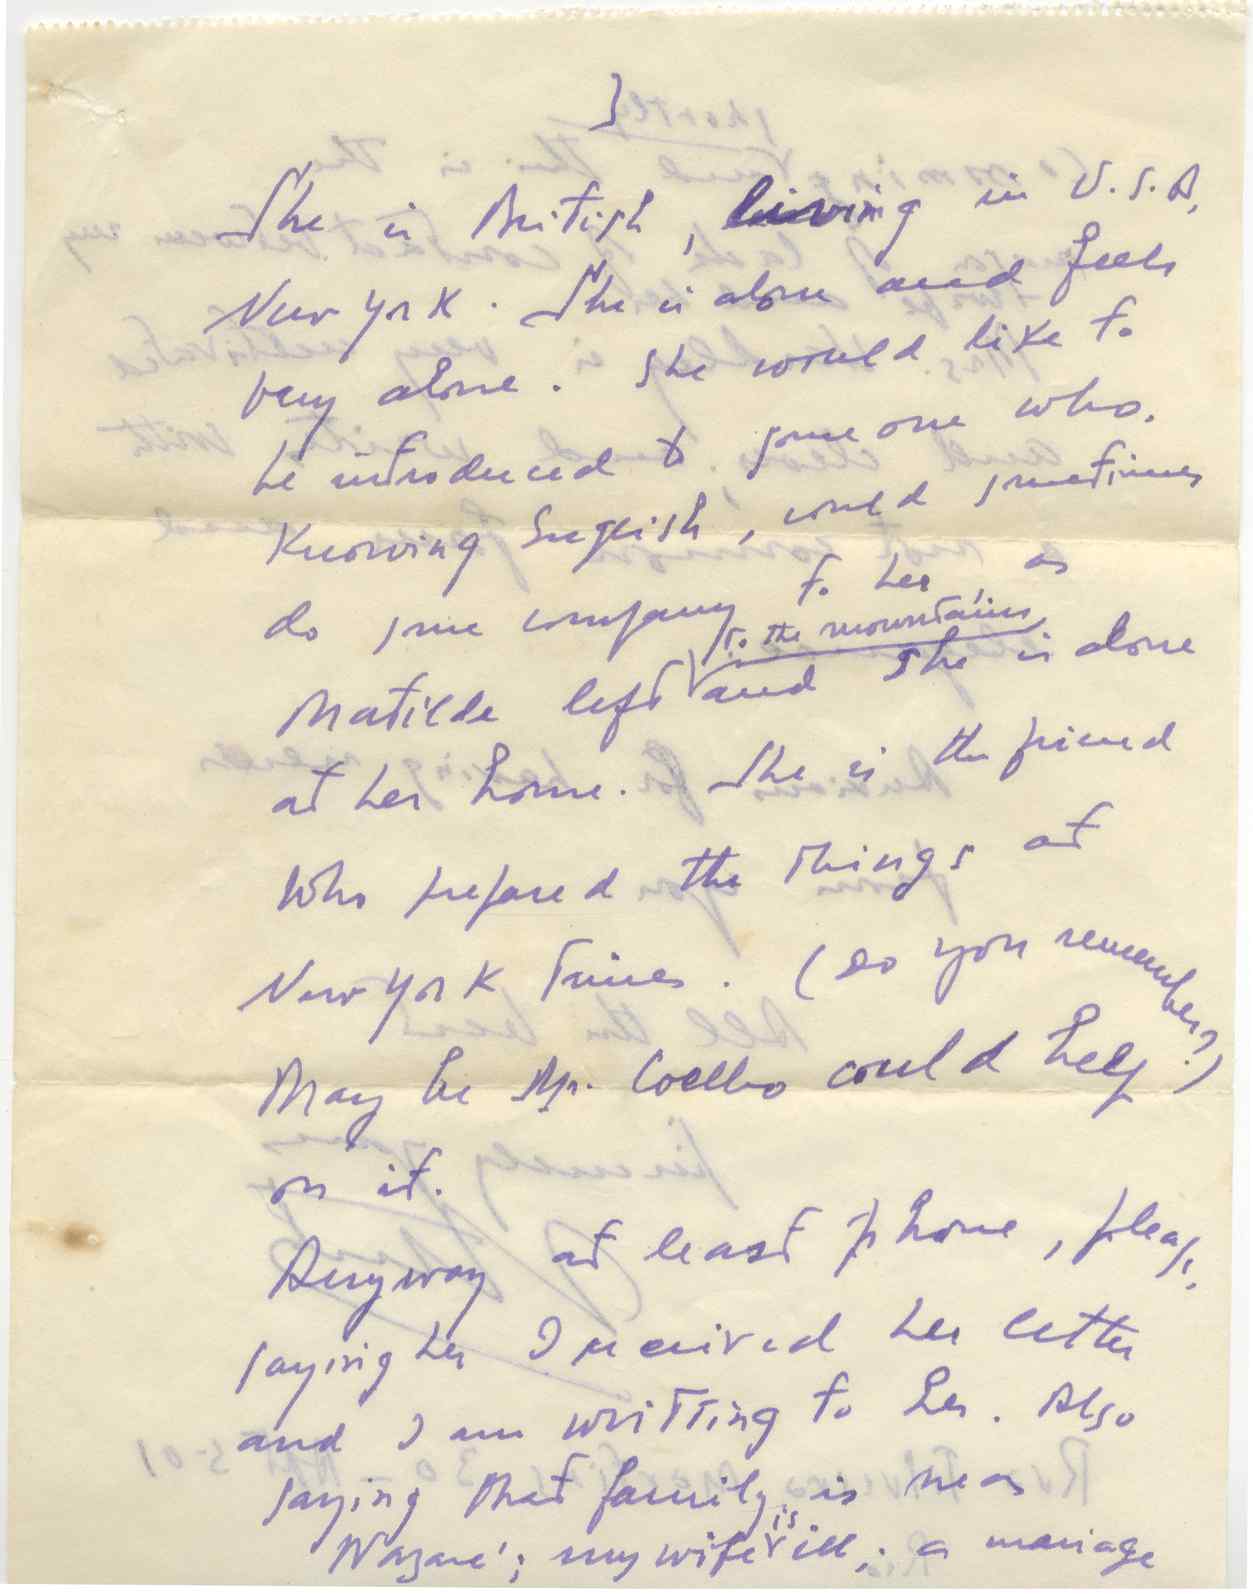 3
She is British, living in U.S.A,
New York. She is alone and feels
very alone. She would like to
be introduced to some one who,
Knowing English, could sometimes
do some company to her, as
Matilde left to the mountains and she is alone
at her home. She is the friend
Who prepared the things at
New York Times. (Do you remember?)
May be Mr. Coelho could help
on it.
Anyway at least phone, please,
saying her I received her letter
and I am writting to her. Also
saying that family is near
Nazaré; my wife is ill; a mariage